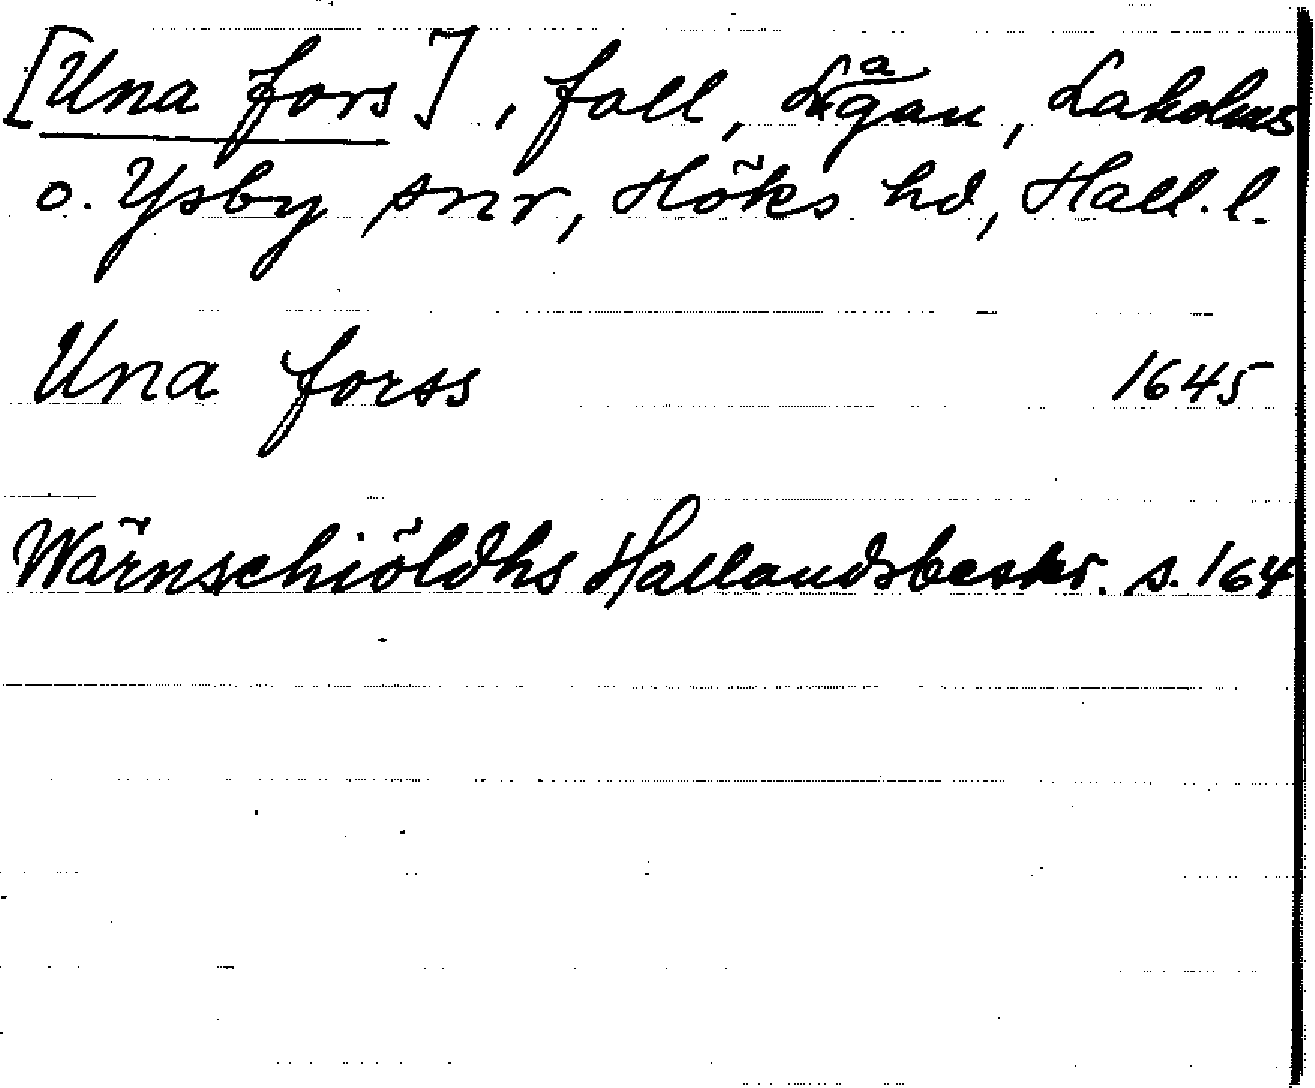 [Una fors], fall, Lagan, Laholms
o. Ysby snr, Höks hd, Hall. l.
Una forss 1645
Wärnschiöldhs Hallandsbeskr. s. 164